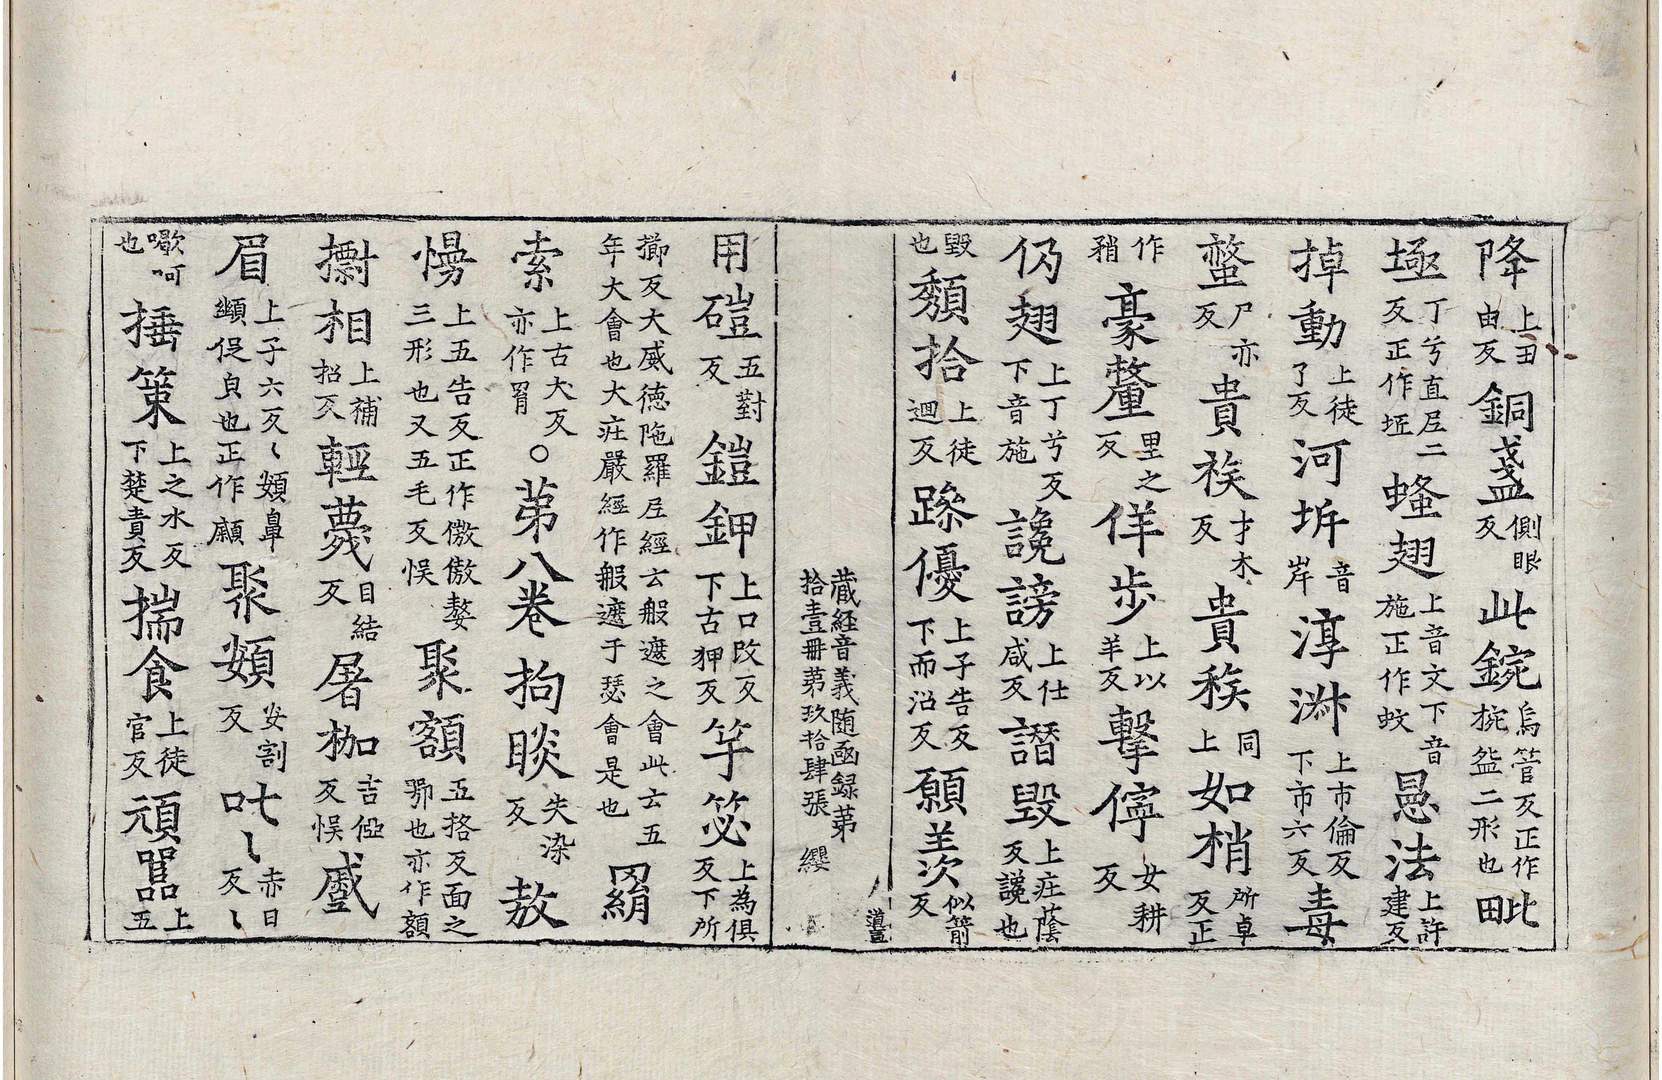 降上田由反銅盞側眼反此鋺烏管反正作捥盌二形也毗
埵丁兮直尼二反正作坻蟁翅上音文下音施正作蚊恳法上許建反
掉動上徒了反河坼音岸淳淋上市倫反下市六反毒
螫尸亦反貴族才木反貴䅡同上如梢所卓反正
作矟豪釐里之反佯步上以羊反擊儜女耕反
仢翅上丁兮反下音施讒謗上仕咸反譖毀上庄蔭反讒也
毀也頹拾上徒迴反蹂優上子告反下而沼反願羨似箭反
藏經音義随函録苐拾壹冊苐玖拾肆張 纓
用磑五對反鎧鉀上口改反下古狎反竽笭上為俱反下所
擳反大威徳陁羅尼經云般遮之會此云五年大會也大莊嚴經作般遮于瑟會是也羂
索上古犬反亦作罥○苐八卷拘睒失染反敖
慢上五告反正作傲慠嫯三形也又五毛反悮聚額五挌反面之鄂也亦作額
㩧相上補招反輕蔑目結反屠枷吉伽反悮蹙
眉上子六反〻頞鼻顰促皃也正作顣聚頞安割反吒〻赤日反〻
歇呵也捶策上之水反下楚責反揣食上徒官反頑嚚上五